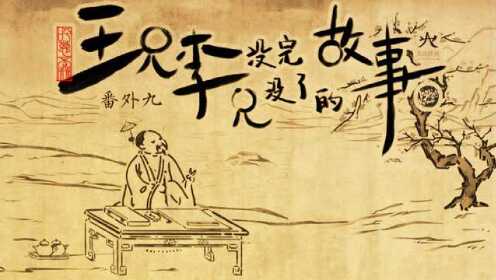 王兄李兄没完没了的故事
番外九